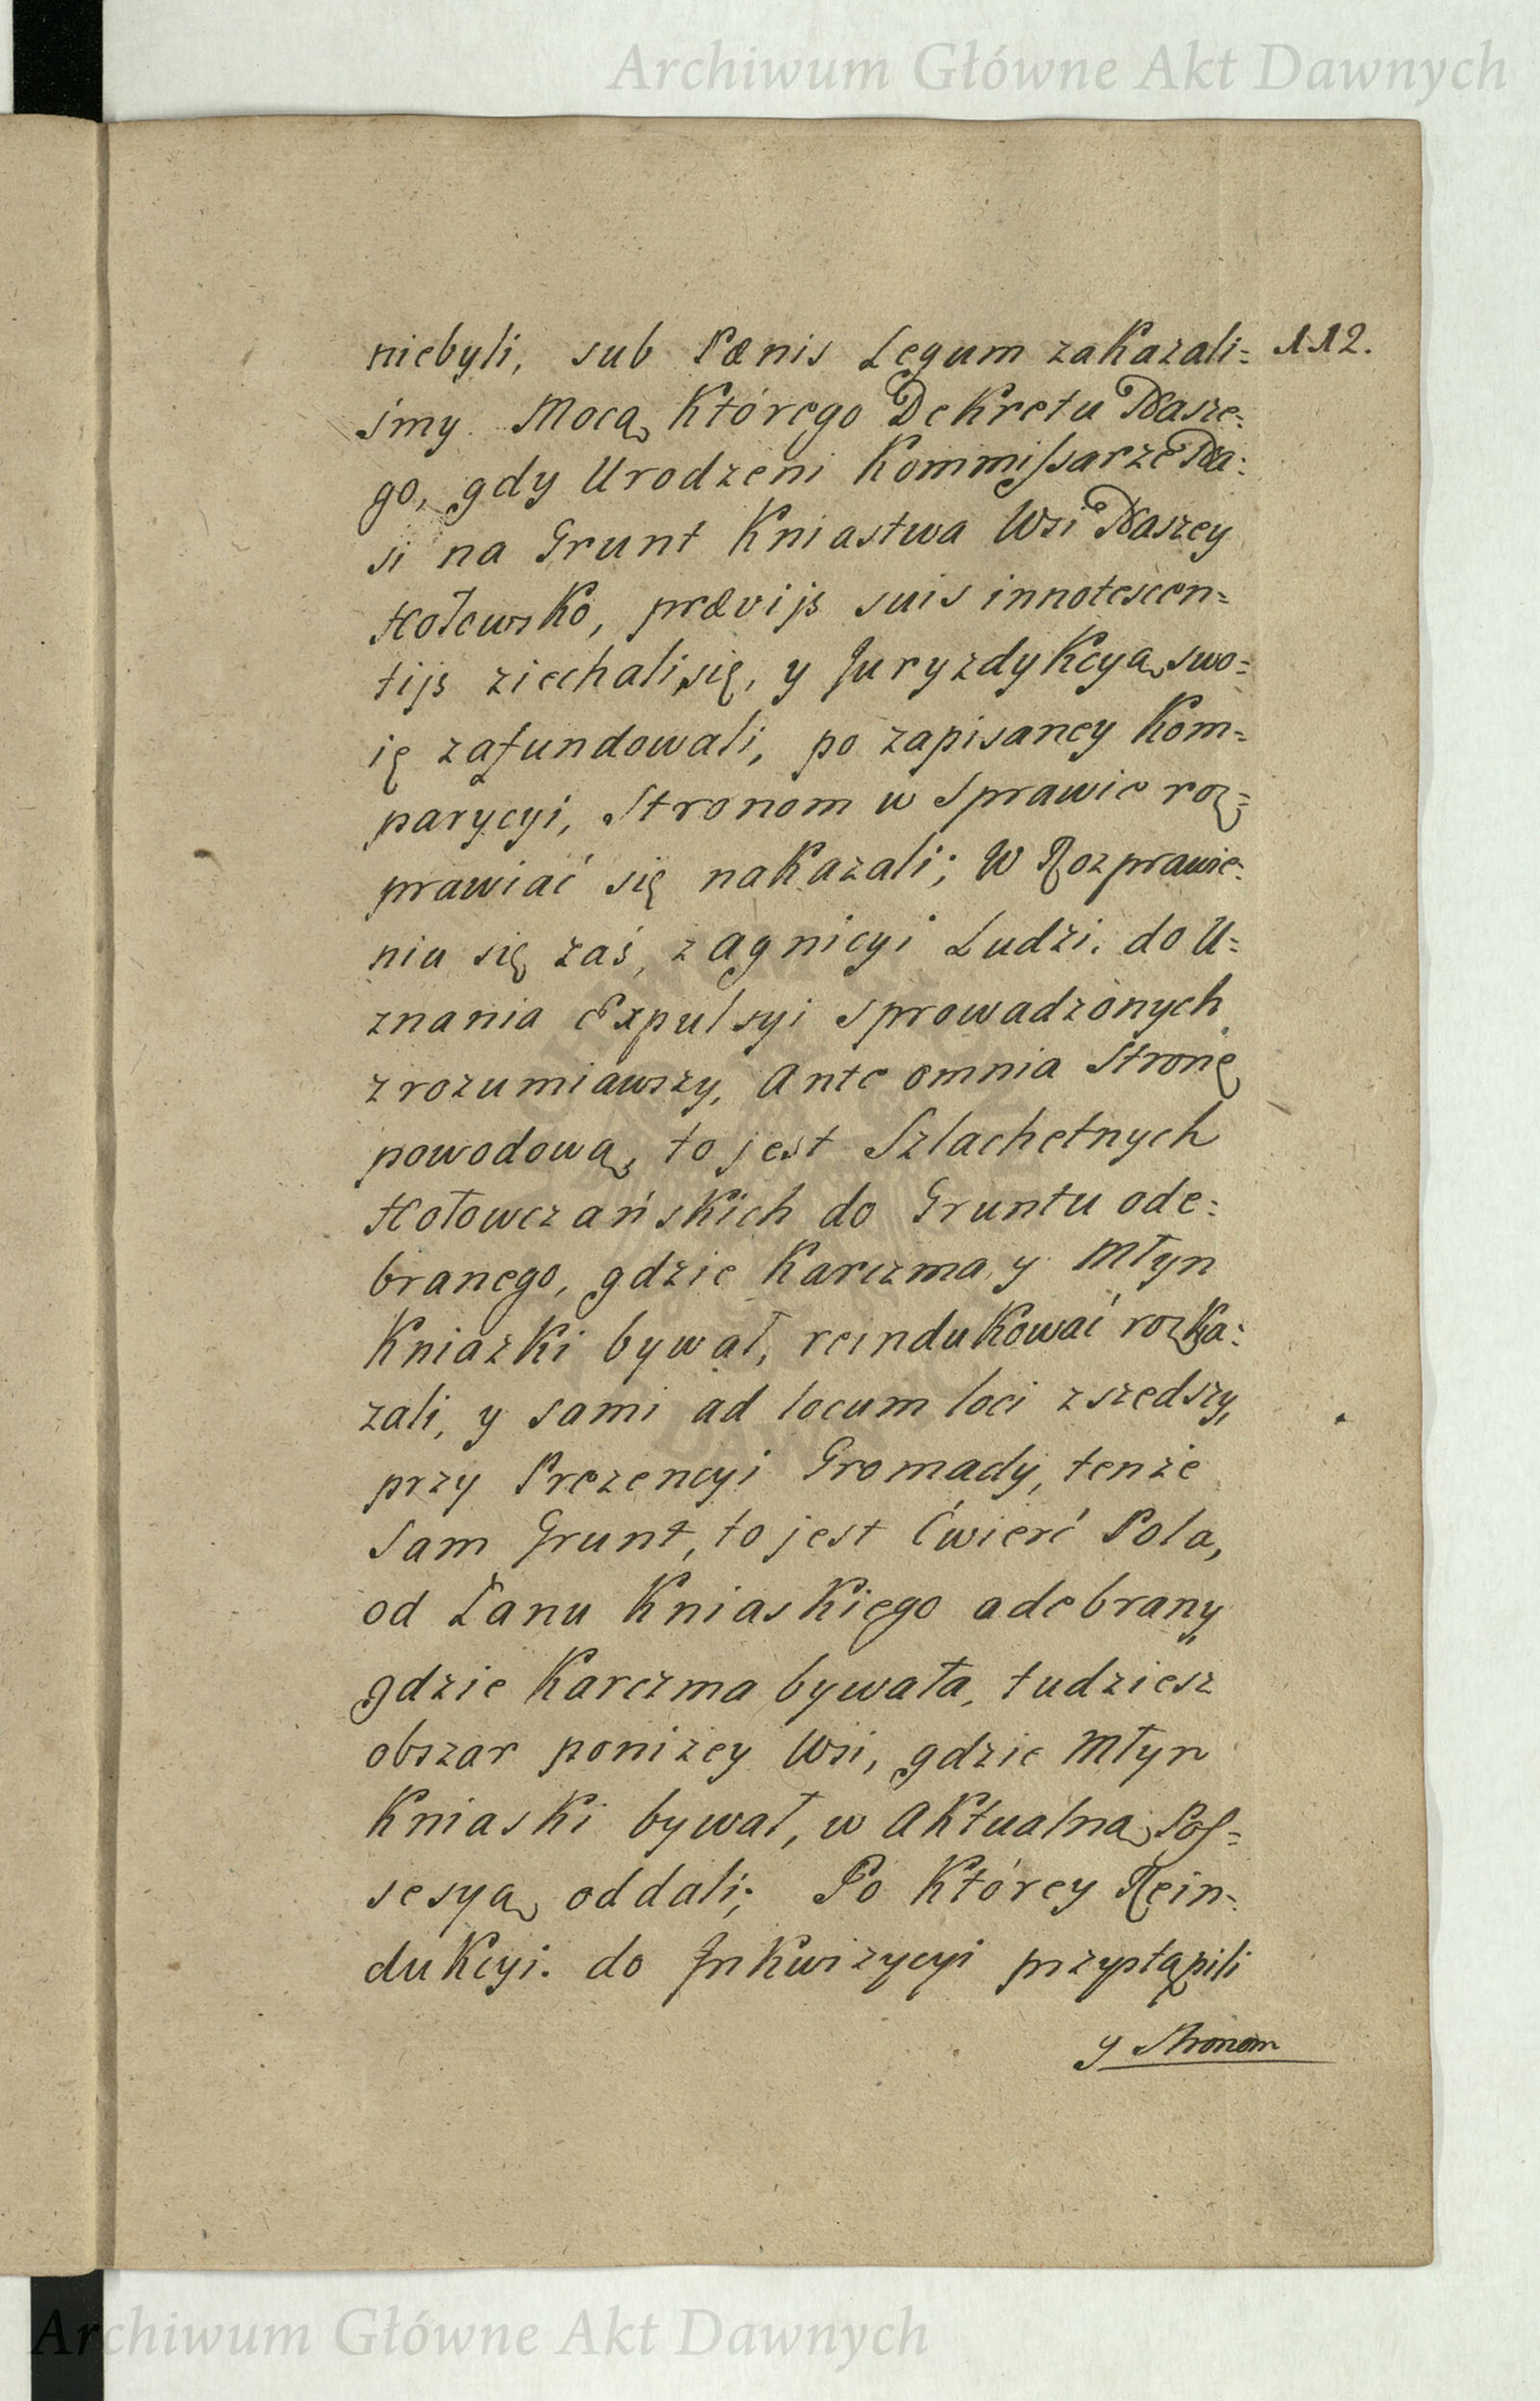 Archiwum Główne Akt Dawnych
niebyli, sub Pœnis Legum zakazali= 112.
śmy. Mocą którego Dekretu Nasze:
go, gdy Urodzeni Kommissarze Na:
si na Grunt Kniastwa Wsi Naszey
Hołowsko, prævijs suis innotescen=
tijs ziechali się, y Juryzdykcyą swo=
ię zafundowali, po zapisaney Kom=
parycyi, Stronom w Sprawie roz=
prawiać się nakazali; W Rozprawie:
niu się zaś, z agnicyi Ludzi. do U=
znania Expulsyi sprowadzonych
zrozumiawszy, Ante omnia Stronę
powodową, to jest Szlachetnych
Hołowczańskich do Gruntu ode:
branego, gdzie Karczma y Młyn
Kniazki bywał, reindukować rozka:
zali, y sami ad locum loci zszedszy,
przy Prezencyi Gromady, tenże
Sam Grunt, to jest Ćwierć Pola,
od Łanu Kniaskiego adebrany
gdzie Karczma bywała, tudziesz
obszar poniżey Wsi, gdzie Młyn
Kniaski bywał, w Aktualną Pos=
sesyą oddali; Po którey Rein=
dukcyi. do Inkwizycyi przystąpili
y Stronom
Archiwum Główne Akt Dawnych